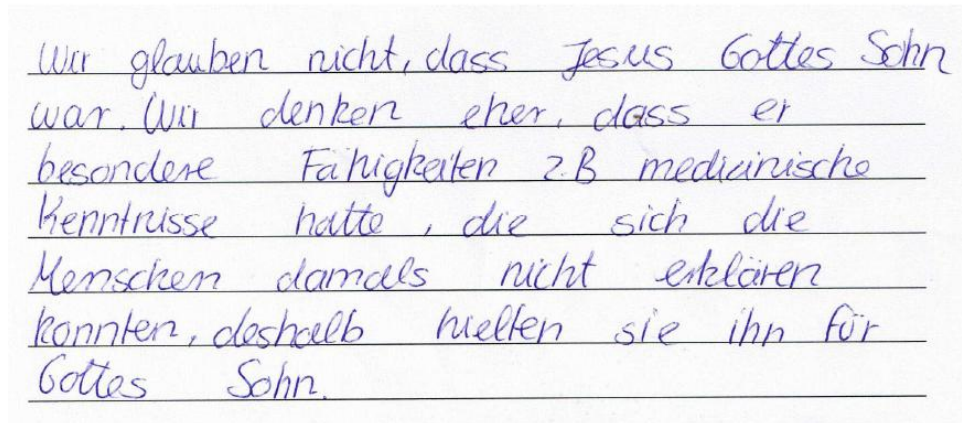 Wir glauben nicht, dass Jesus Gottes Sohn
war. Wir denken eher, dass er
besondere Fähigkeiten z.B medizinische
Kenntnisse hatte, die sich die
Menschen damals nicht erklären
konnten, deshalb hielten sie ihn für
Gottes Sohn.